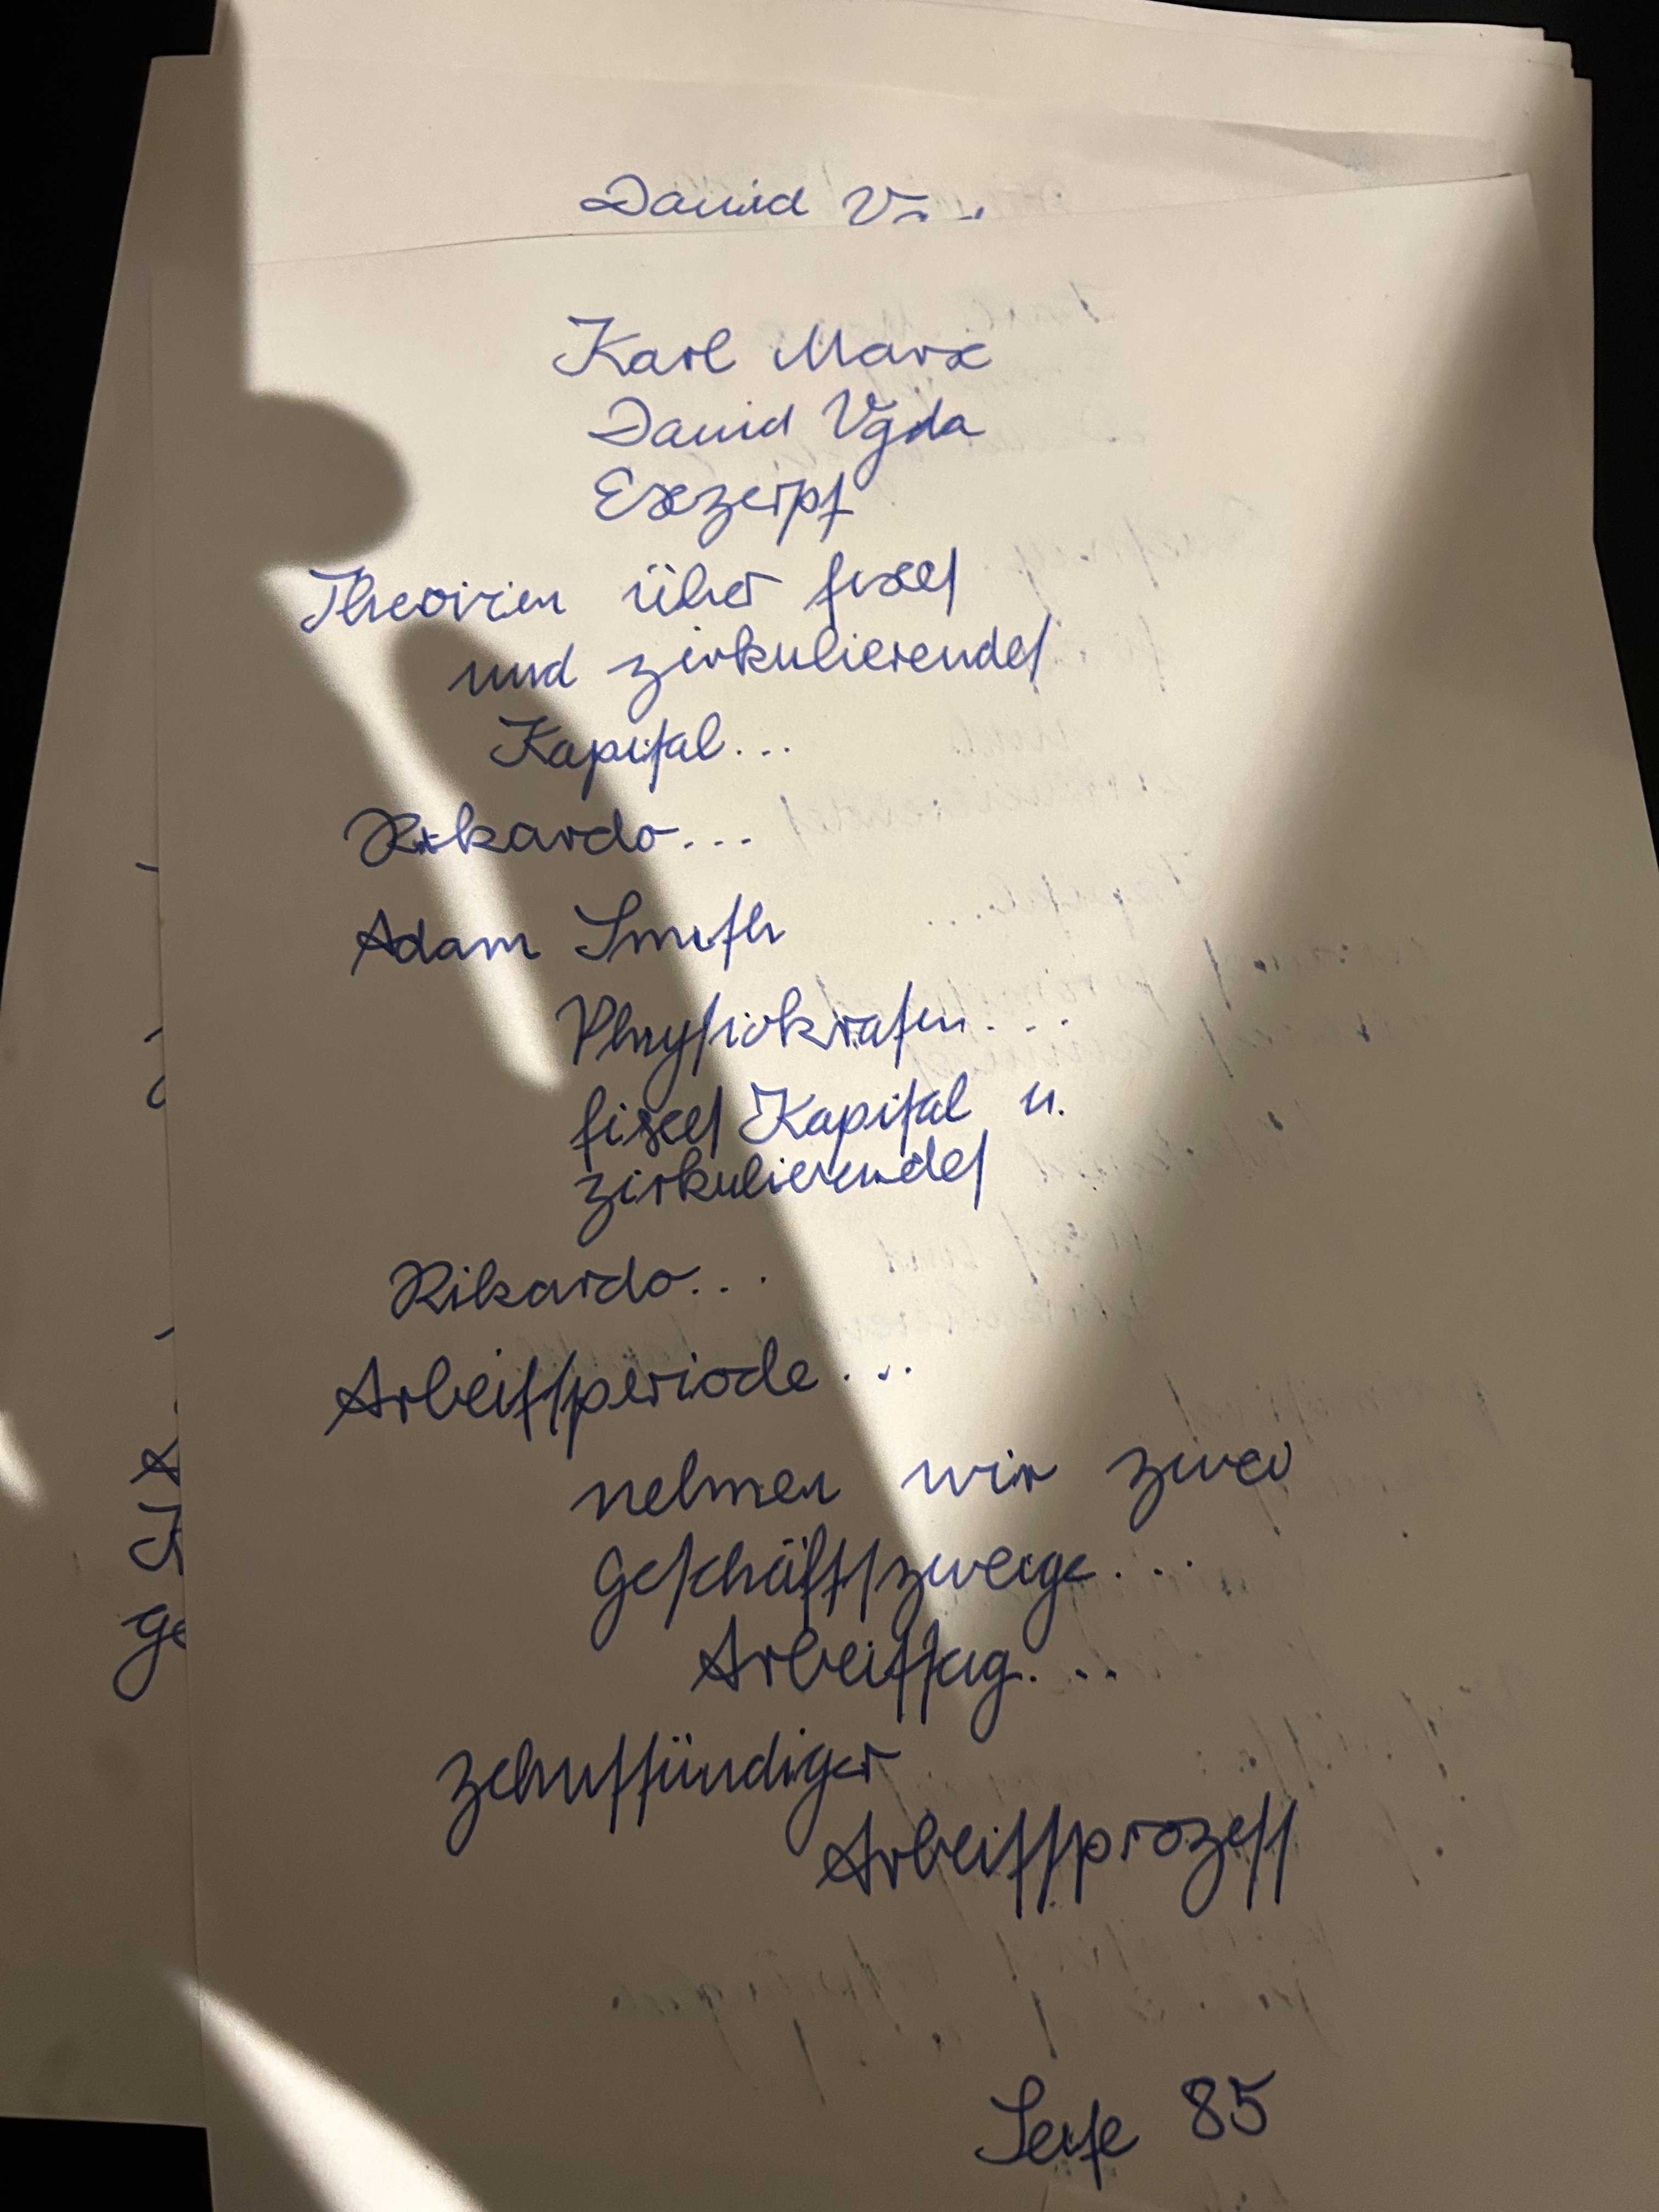 David
Karl Marx
David Vgda
Exzerpt
Theorien über fixes
und zirkulierendes
Kapital...
Rikardo...
Adam Smith
Physiokraten...
fixes Kapital u.
zirkulierendes
Rikardo...
Arbeitsperiode...
nehmen wir zwei
Geschäftszweige...
Arbeitstag...
zehnstündiger
Arbeitsprozess
Seite 85